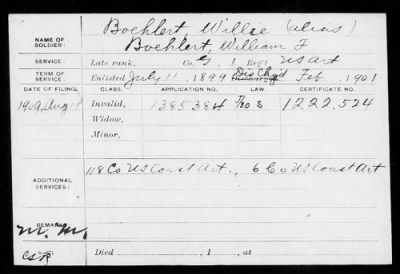 NAME OF SOLDIER: Boehlert, Willie (alias)
Boehlert, William F
SERVICE: Late rank, Co. G, 1 Reg't US Art
TERM OF SERVICE: Enlisted July 11, 1899 Dis Chgd Feb, 1901
DATE OF FILING. CLASS. APPLICATION NO. LAW. CERTIFICATE NO.
1909, Aug Invalid, 1385384 1222,524
Widow,
Minor,
ADDITIONAL SERVICES: 118 Co US Coast Art., 6 Co US Coast Art
REMARKS:
M. M.
Died , 1 , at